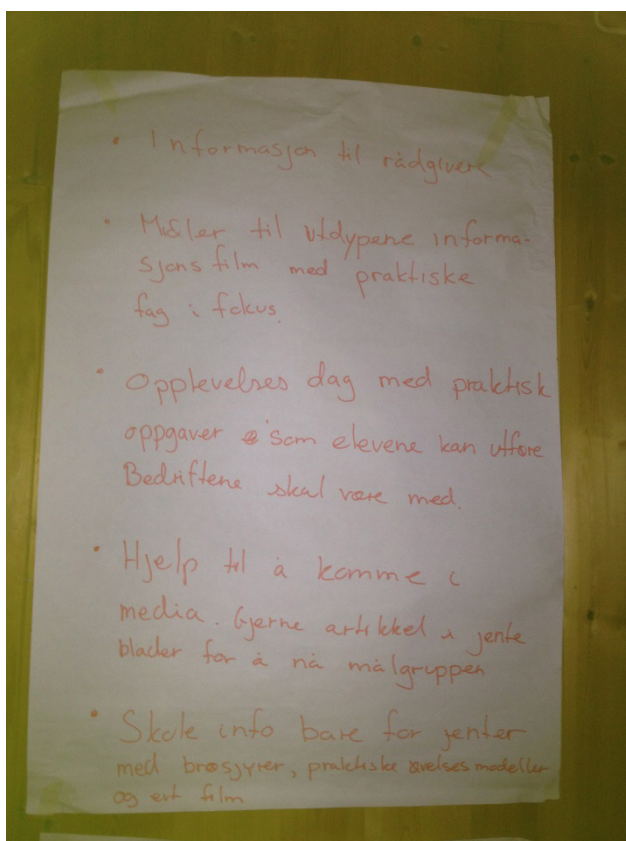 • Informasjon til rådgiver
• Midler til utdypene informa-
sjons film med praktiske
fag i fokus.
• Opplevelses dag med praktisk
oppgaver som elevene kan utføre
Bedriftene skal være med.
• Hjelp til å komme i
media. Gjerne artikkel i jente
blader for å nå målgruppen
• Skole info bare for jenter
med brosjyrer, praktiske øvelses modeller
og evt film